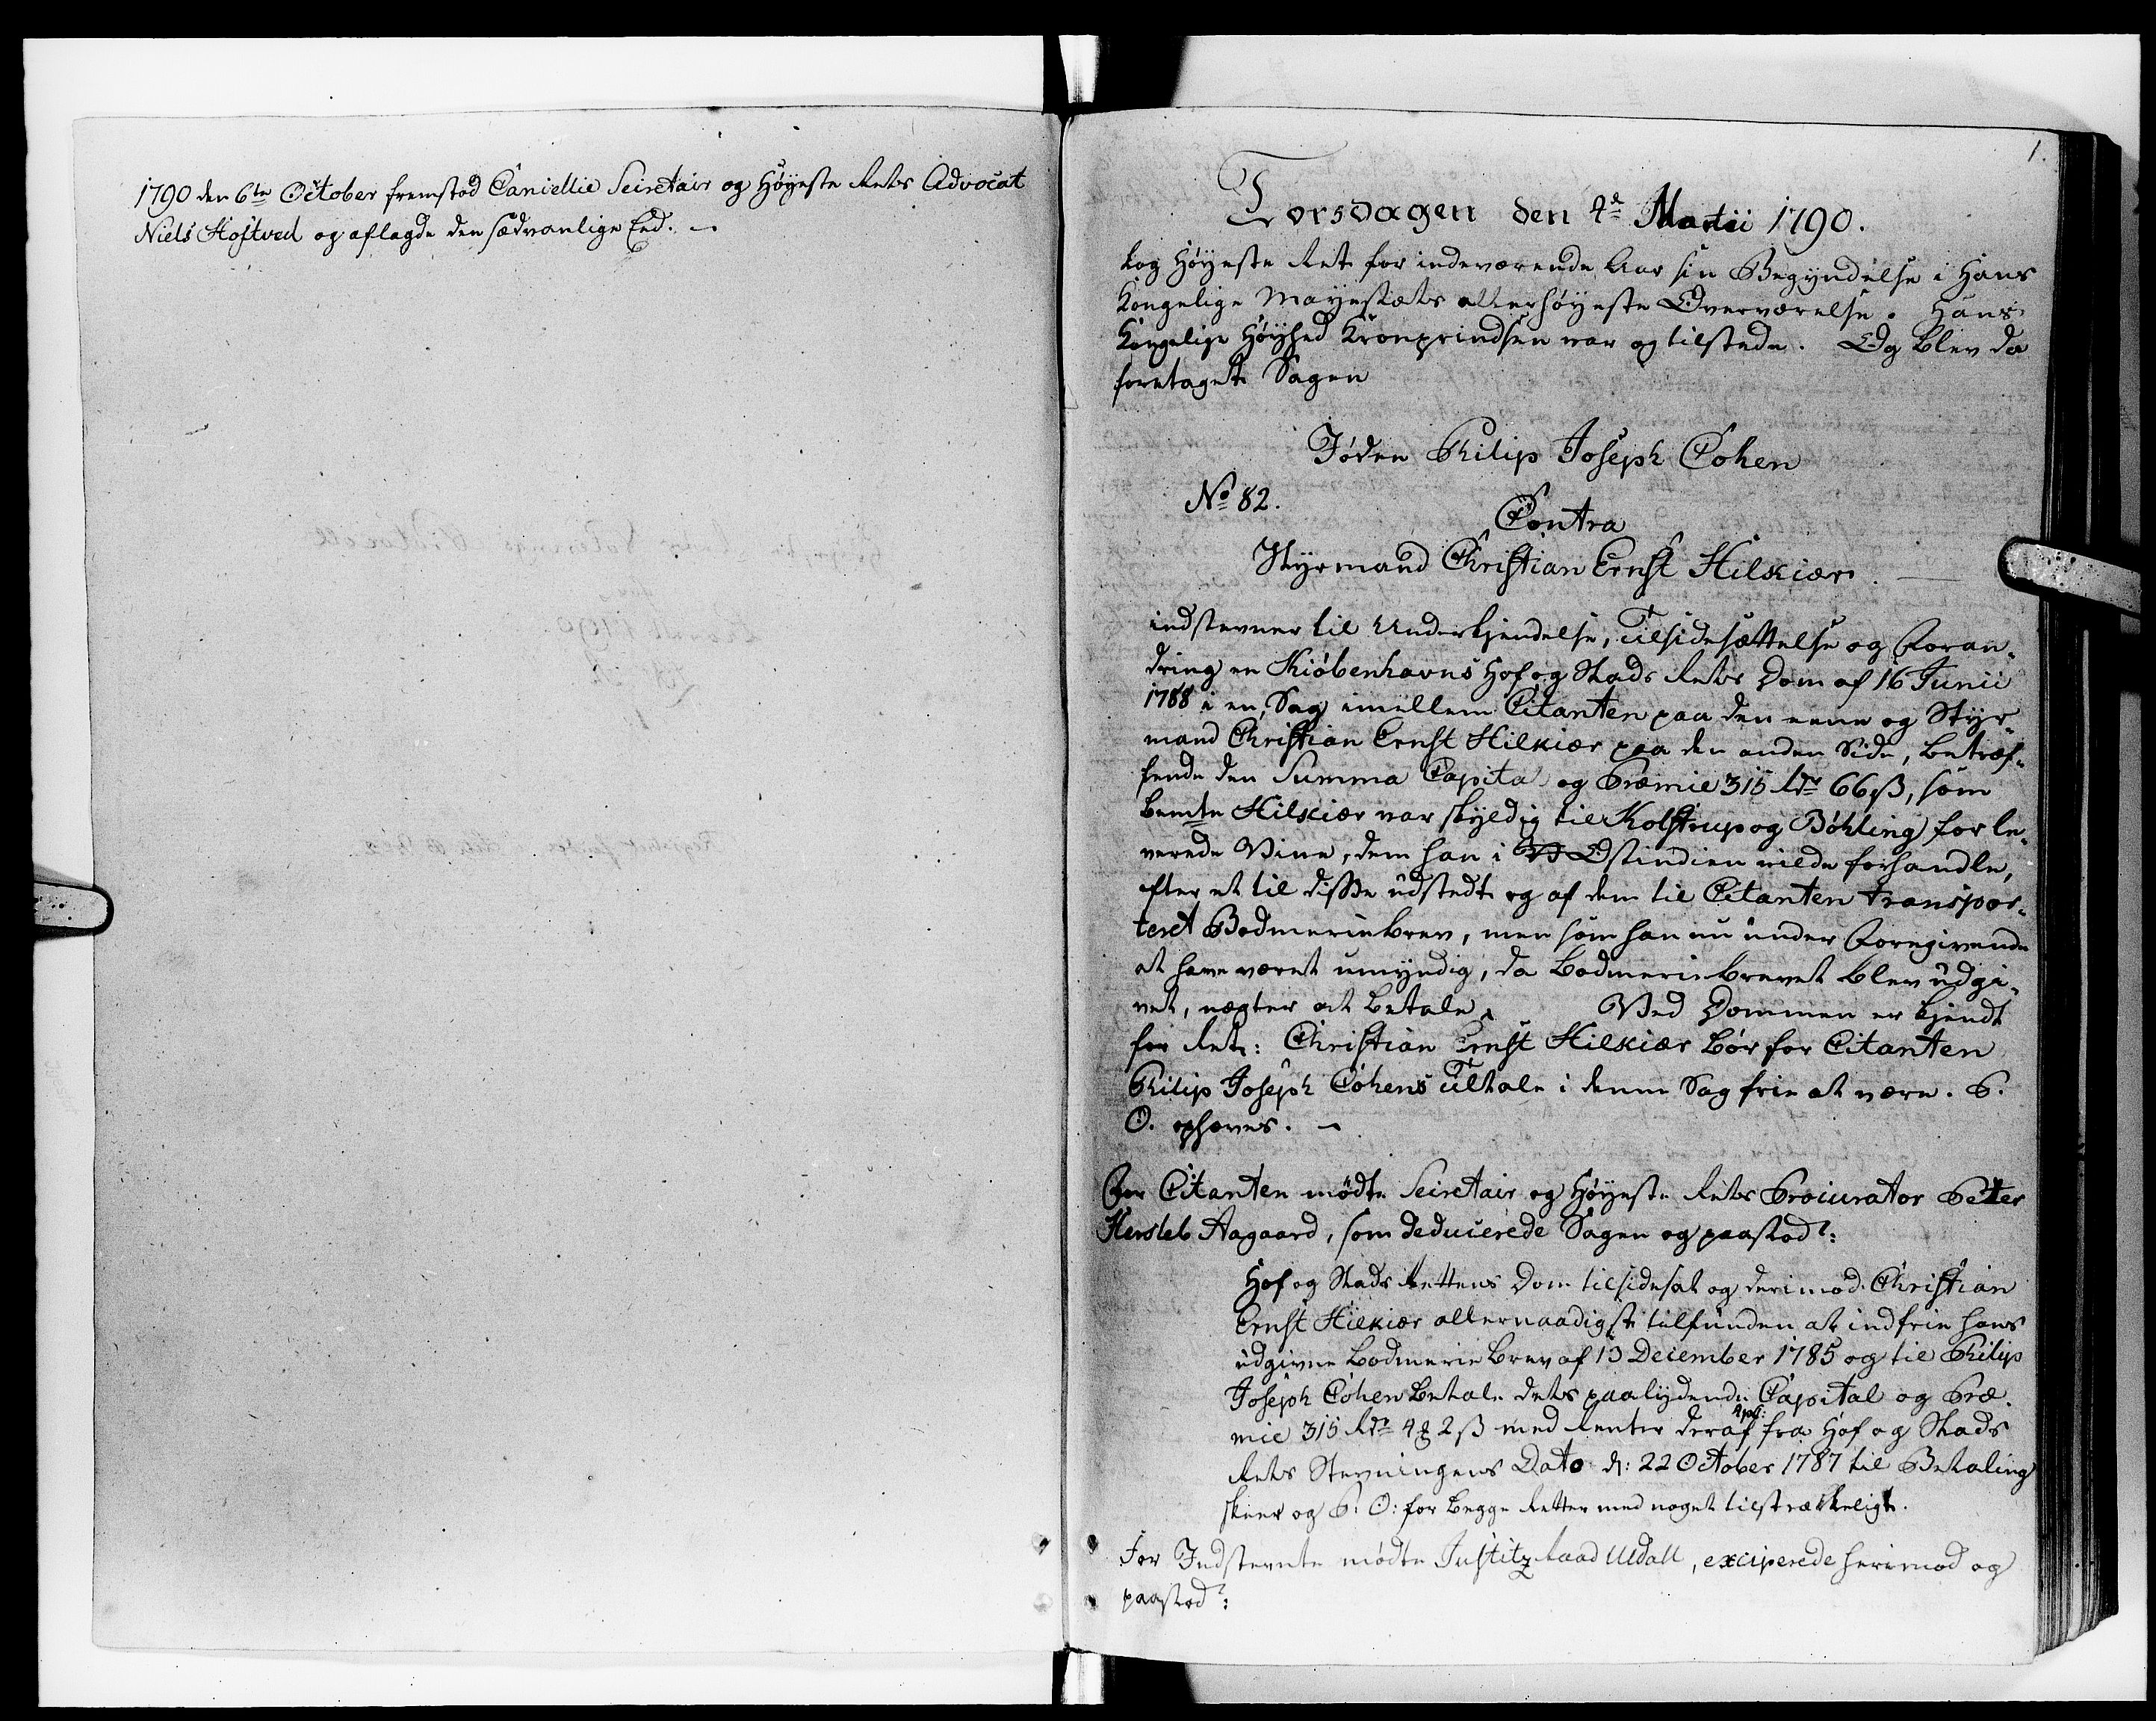 1790 den 6te October fremstod Cancellie Secretair og Høyeste Rets Advocat
Niels Hoftved og aflagde den sædvanlige Eed.
1.
Torsdagen den 4de Martii 1790.
tog Høyeste Ret for indeværende Aar sin Begyndelse i Hans
Kongelige Mayestæts allerhøyeste Overværelse. Hans
Kongelige Høyhed Kronprindsen var og tilstede. Og blev da
foretaget Sagen
Jøden Philip Joseph Cohen
No 82.
Contra
Styrmand Christian Ernst Hilkiær.
indstevner til Underkjendelse, Tilsidesættelse og Foran-
dring en Kiøbenhavns Hof og Stads Rets Dom af 16 Junii
1788 i en Sag imellem Citanten paa den eene og Styr-
mand Christian Ernst Hilkiær paa den anden Side, betræf-
fende den Summa Capital og Præmie 315 Rdr 66 ß, som
bemte Hilkiær var skyldig til Kolstrup og Böhling for le-
verede Vine, dem han i Ostindien vilde forhandle,
efter et til disse udstedt og af dem til Citanten transpor-
teret Bodmeriebrev, men som han nu under Foregivende
at have været umyndig, da Bodmeriebrevet blev udgi-
vet, nægter at betale. Ved Dommen er kjendt
for Ret: Christian Ernst Hilkiær bør for Citanten
Philip Joseph Cohens Tiltale i denne Sag frie at være. P.
O. ophæves.
For Citanten mødte Secretair og Høyeste Rets Procurator Peter
Hersleb Aagaard, som deducerede Sagen og paastod:
Hof og Stads Rettens Dom tilsidesat og derimod Christian
Ernst Hilkiær allernaadigst tilfunden at indfrie hans
udgivne Bodmerie Brev af 13 December 1785 og til Philip
Joseph Cohen betale dets paalydende Capital og Præ-
mie 315 Rdr 4 Mk 2 ß med Renter deraf 4 pC: fra Hof og Stads
Rets Stevningens Dato d: 22 October 1787 til Betaling
skeer og P. O: for begge Retter med noget tilstrækkeligt.
For Indstevnte mødte Justitz Raad Uldall, exciperede herimod og
paastod: